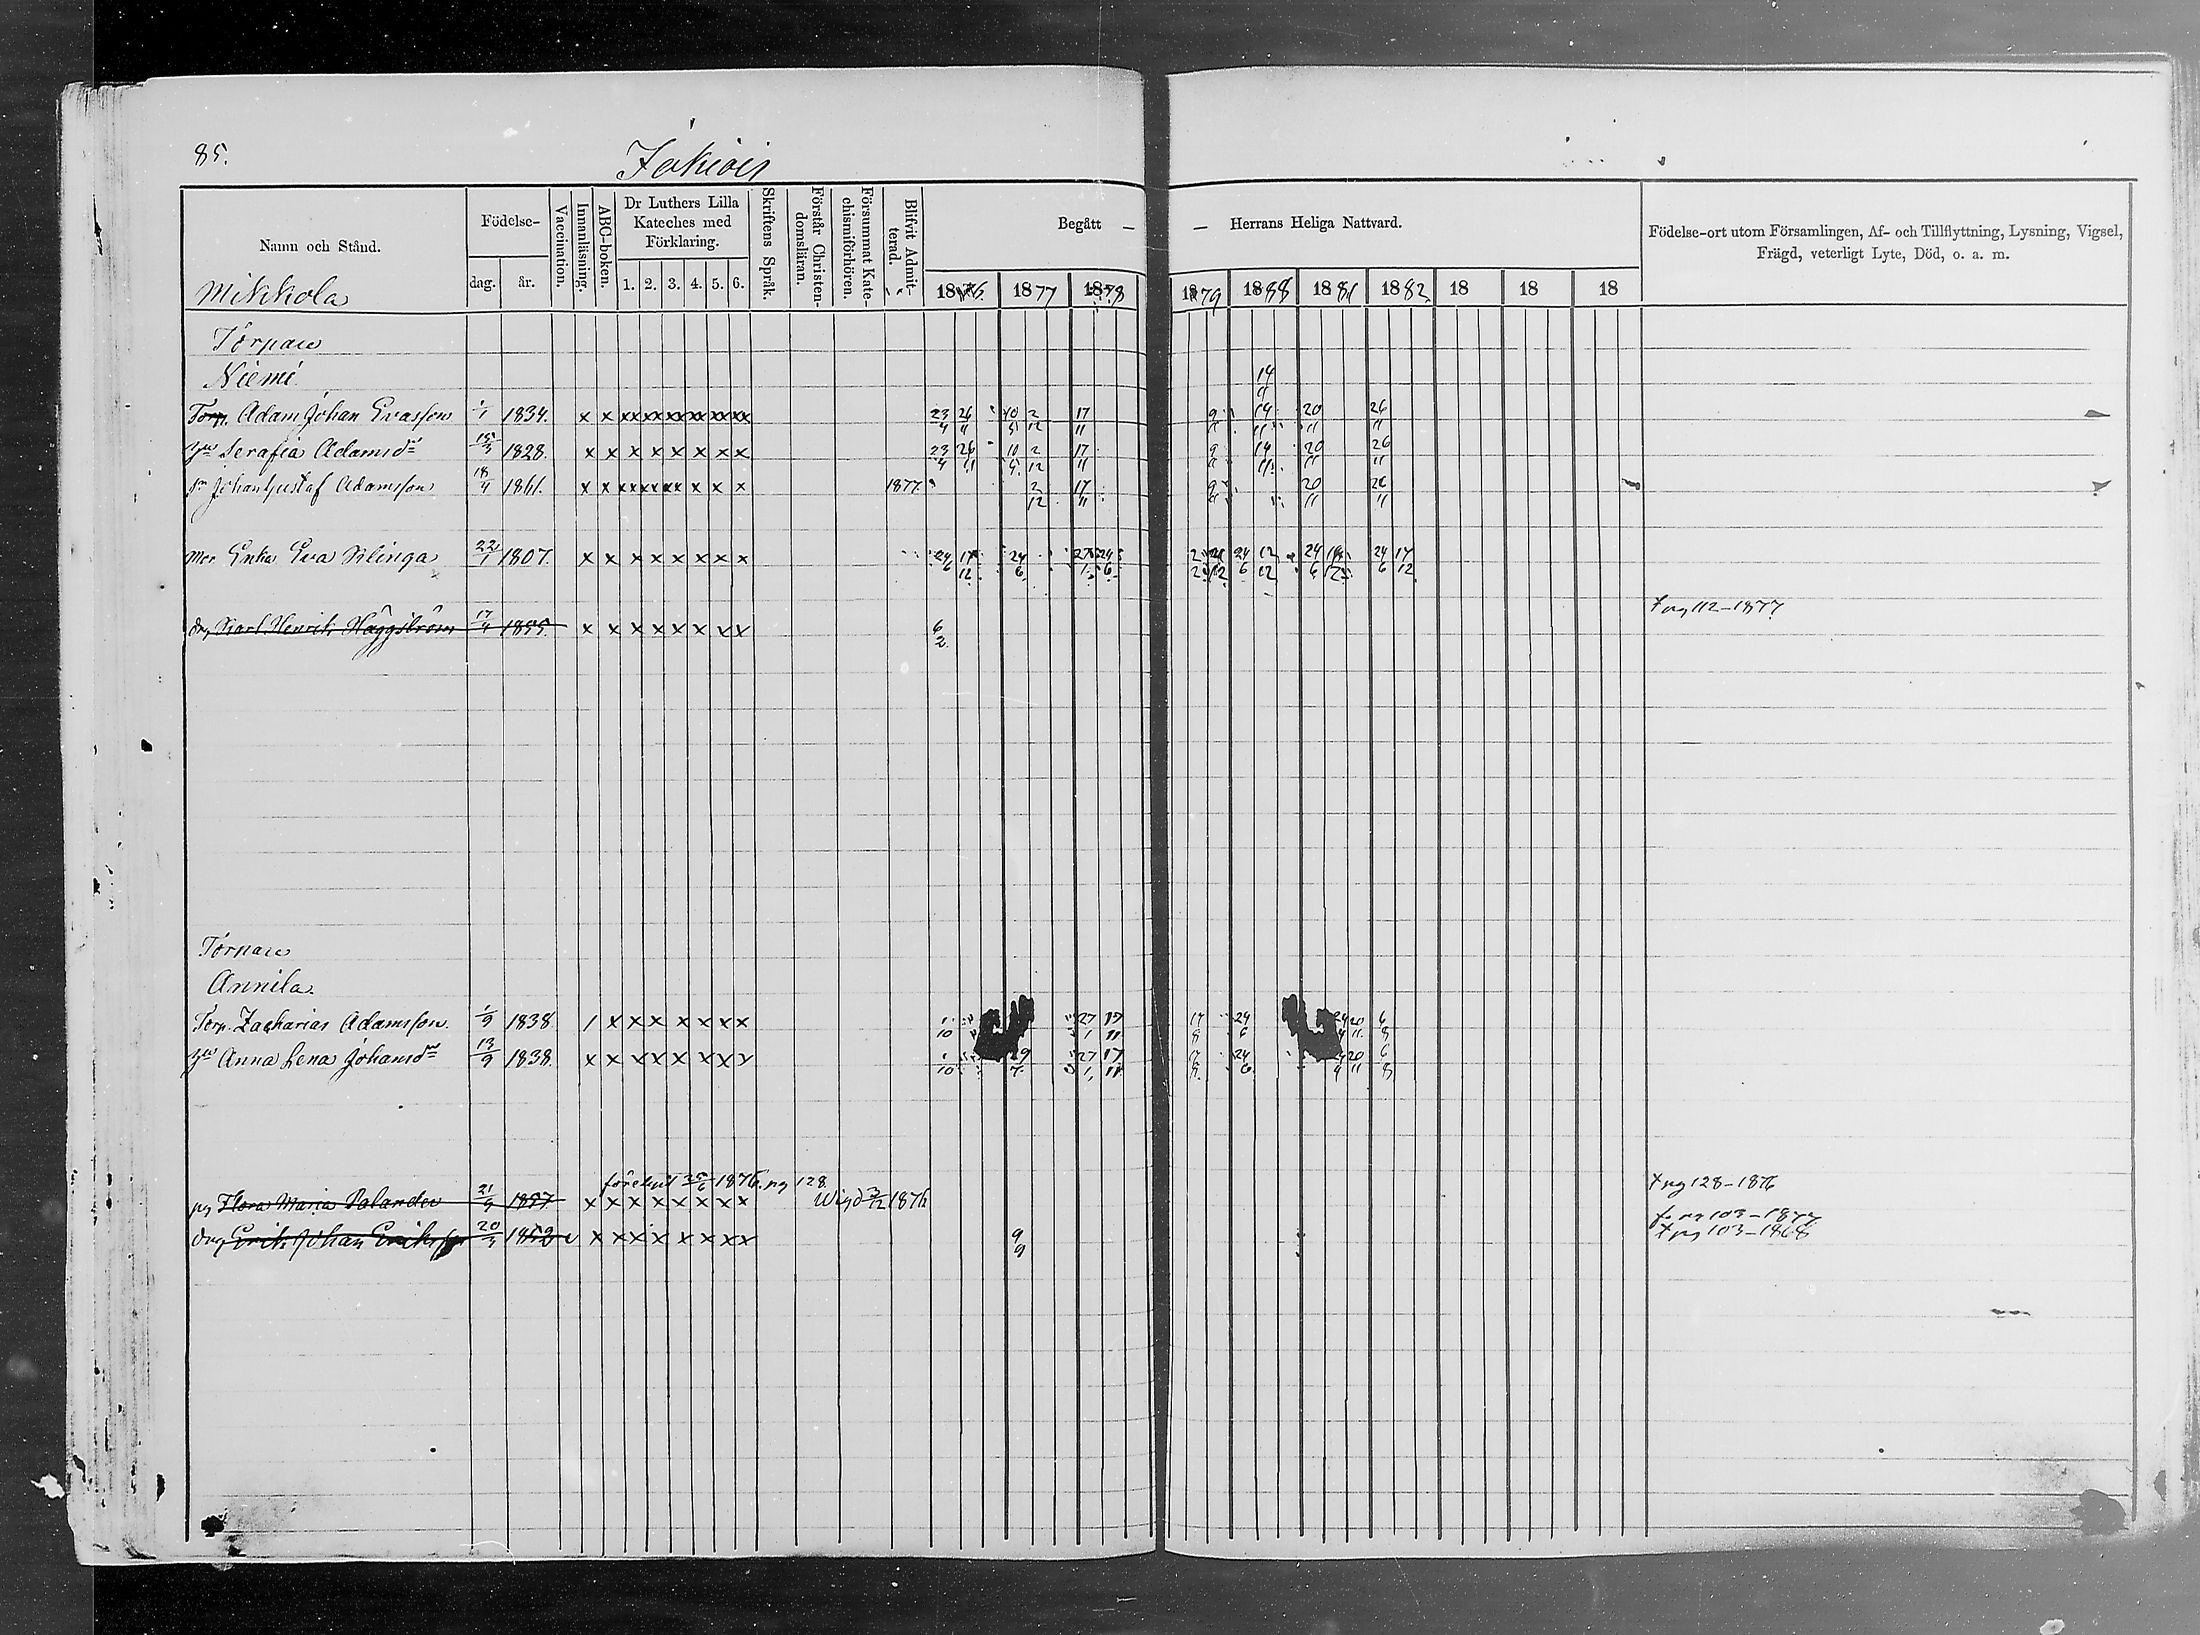 85.
Jokiois
Namn och Stånd.
Födelse-
dag.
år.
Vaccination.
Innanläsning.
ABC-boken.
Dr Luthers Lilla
Kateches med
Förklaring.
1. 2. 3. 4. 5. 6.
Skriftens Språk.
Förstår Christen-
domsläran.
Försummat Kate-
chismiförhören.
Blifvit Admit-
terad.
Begått —
— Herrans Heliga Nattvard.
Födelse-ort utom Församlingen, Af- och Tillflyttning, Lysning, Vigsel,
Frägd, veterligt Lyte, Död, o. a. m.
Mikkola
1876 1877 1878 1879 1882 18 18 18
Torpare
Niemi
14
11
Torp. Adam Johan Evasson 1/1 1834. x x xx xx xx xx xx xx 23/4 26/11 10/5 2/12 17/11 9 14/11 20/11 26/11
Serafia Adamsdr 15/3 1828. x x x x x x x x 23/4 26/11 10/5 2/12 17/11 9 14/11 20/11 26/11
Johan Gustaf Adamsson 18/4 1861. x x xx xx xx x x x 1877 2/12 17/11 9 20/11 26/11
Enka Eva Klinga 22/1 1807. x x x x x x x x 24/6 24/6 24/6 24/6 12/12 24/6 24/6 17/12
drg Karl Henrik Häggström 17/4 1855. x x x x x x x x 6/2
t pg 112–1877
Torpare
Annila.
Torp. Zacharias Adamsson 1/9 1838 / x x x x x x x 1/10 27/1 17/11 17/8 24/6 20/11 6/8
Anna Lena Johansdr 13/9 1838. x x x x x x x x 1/10 27/1 17/11 17/8 24/6 20/11 6/8
1876. pg 128.
pg Flora Maria Palander 21/9 1857. x x x x x x x x Wigd 3/12 1876 t pg 128–1876
pg 103–1877
drg Erik Johan Eriksson 20/3 1858 x x x x x x x x 9/9 t pg 103–1868